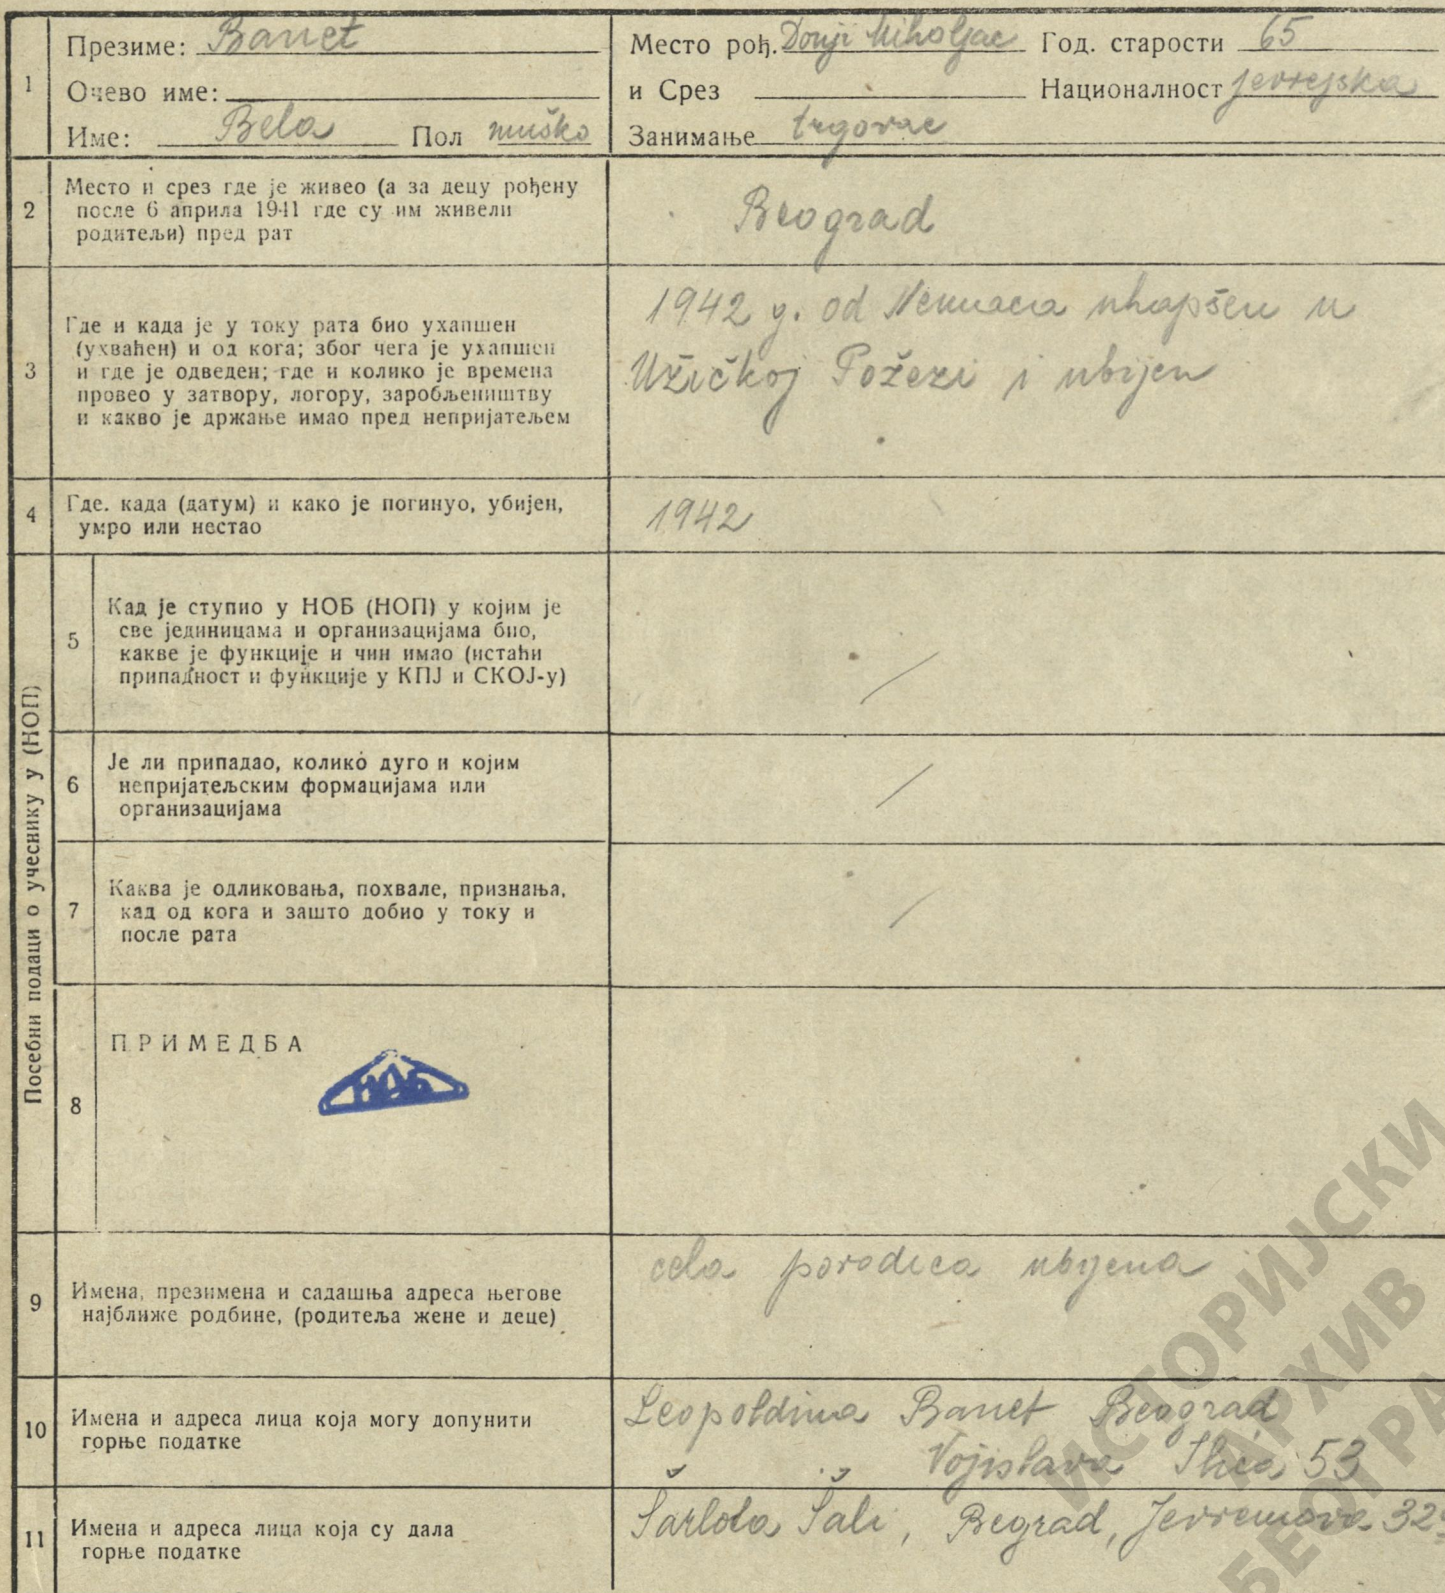 1
Презиме: Banet
Очево име:
Име: Bela Пол muško
Место рођ. Donji Miholjac Год. старости 65
и Срез Националност jevrejska
Занимање trgovac
2
Место и срез где је живео (а за децу рођену
после 6 априла 1941 где су им живели
родитељи) пред рат
Beograd
3
Где и када је у току рата био ухапшен
(ухваћен) и од кога; због чега је ухапшен
и где је одведен; где и колико је времена
провео у затвору, логору, заробљеништву
и какво је држање имао пред непријатељем
1942 g. od Nemaca uhapšen u
Užičkoj Požezi i ubijen
4
Где. када (датум) и како је погинуо, убијен,
умро или нестао
1942
Посебни подаци о учеснику у (НОП)
5
Кад је ступио у НОБ (НОП) у којим је
све јединицама и организацијама био,
какве је функције и чин имао (истаћи
припадност и функције у КПЈ и СКОЈ-у)
/
6
Је ли припадао, колико дуго и којим
непријатељским формацијама или
организацијама
/
7
Каква је одликовања, похвале, признања,
кад од кога и зашто добио у току и
после рата
/
8
ПРИМЕДБА
НОБ
9
Имена, презимена и садашња адреса његове
најближе родбине, (родитеља жене и деце)
cela porodica ubijena
10
Имена и адреса лица која могу допунити
горње податке
Leopoldina Banet Beograd
Vojislava Ilića 53
11
Имена и адреса лица која су дала
горње податке
Šarlota Šali, Begrad, Jevremova 32
ИСТОРИЈСКИ
АРХИВ
БЕОГРА